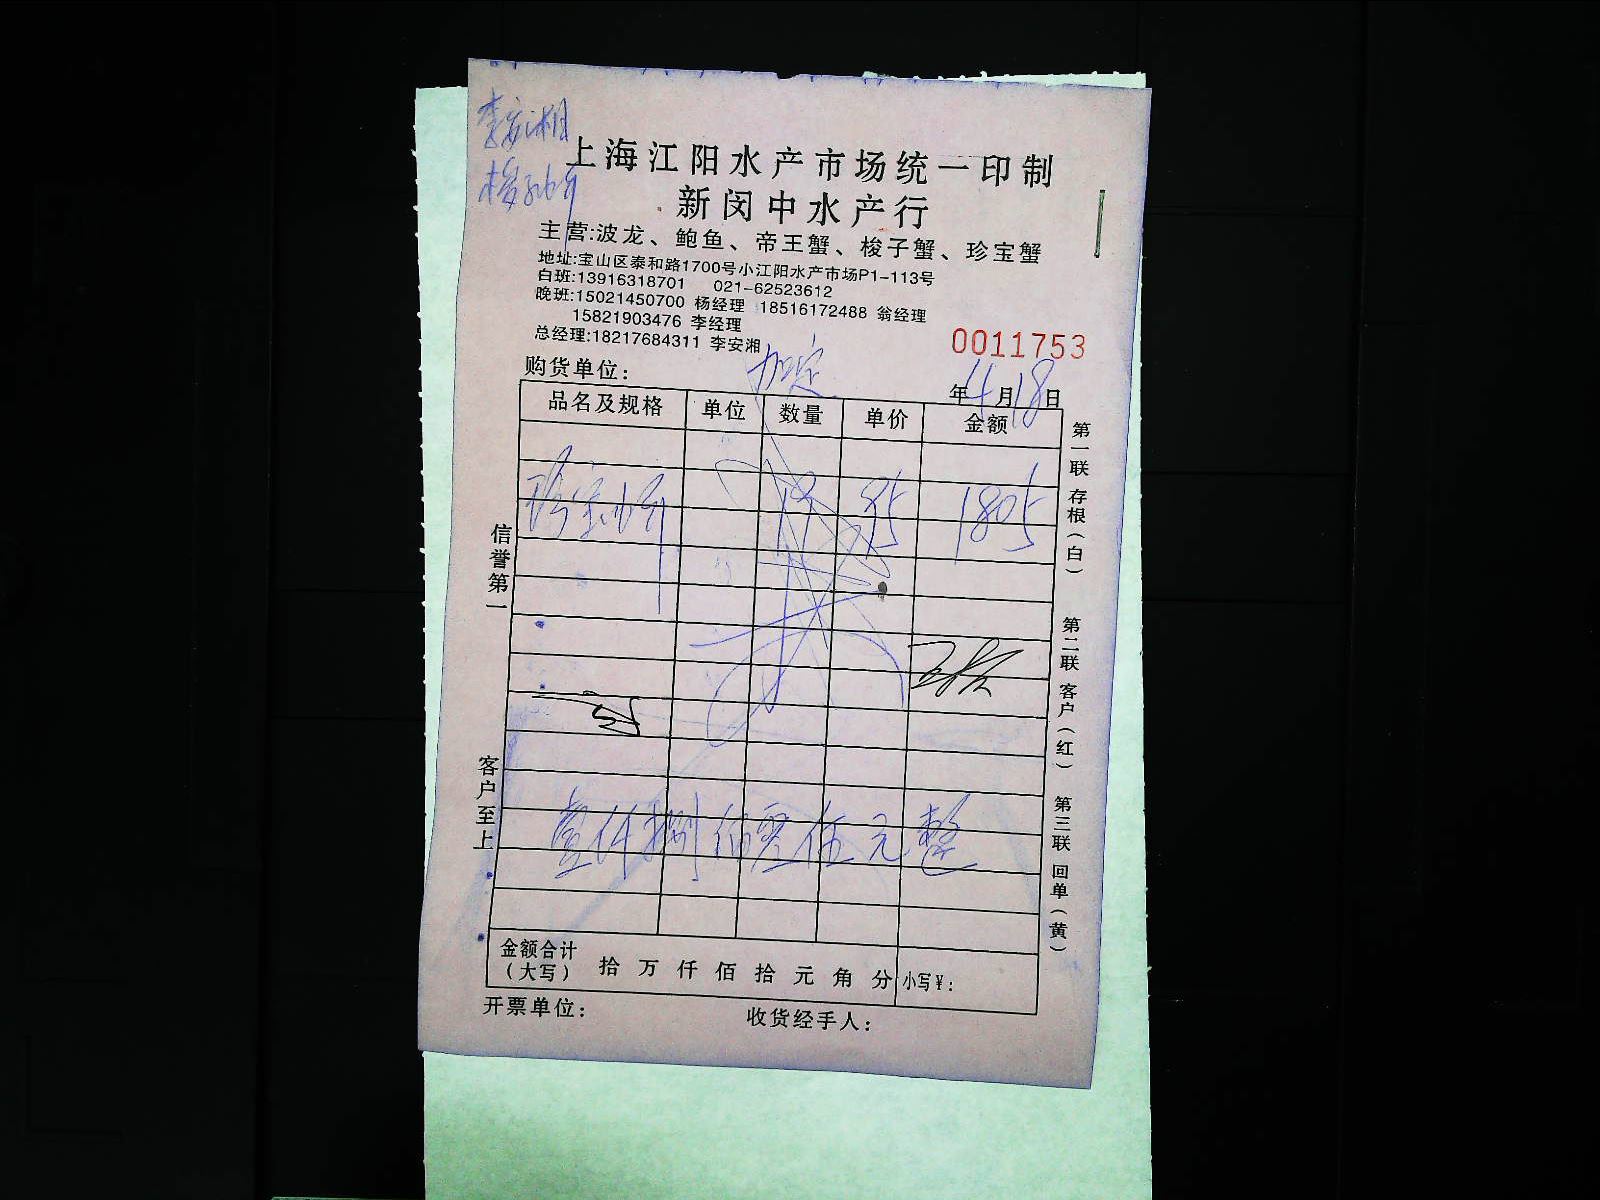 李安湘
上海江阳水产市场统一印制
新闵中水产行
主营:波龙、鲍鱼、帝王蟹、梭子蟹、珍宝蟹
地址:宝山区泰和路1700号小江阳水产市场P1-113号
白班:13916318701 021-62523612
晚班:15021450700 杨经理 18516172488 翁经理
15821903476 李经理
总经理:18217684311 李安湘
0011753
购货单位: 加定 年4月18日
品名及规格 单位 数量 单价 金额
珍宝 19 95 1805
壹仟捌佰零伍元整
金额合计(大写) 拾 万 仟 佰 拾 元 角 分 小写¥:
开票单位: 收货经手人:
信誉第一
客户至上
第一联 存根(白)
第二联 客户(红)
第三联 回单(黄)